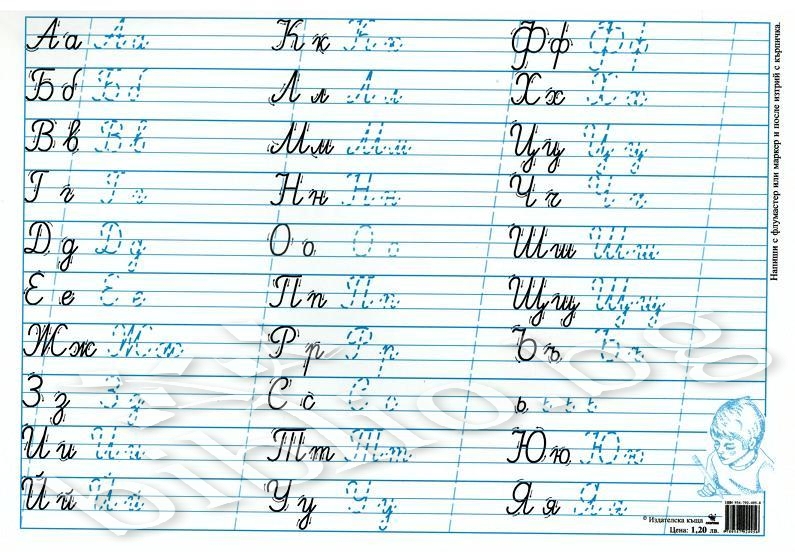 Аа Аа
Бб Бб
Вв Вв
Гг Гг
Дд Дд
Ее Ее
Жж Жж
Зз Зз
Ии Ии
Йй Йй
Кк Кк
Лл Лл
Мм Мм
Нн Нн
Оо Оо
Пп Пп
Рр Рр
Сс Сс
Тт Тт
Уу Уу
Фф Фф
Хх Хх
Цц Цц
Чч Чч
Шш Шш
Щщ Щщ
Ъъ Ъъ
ь ь ь ь ь
Юю Юю
Яя Яя
Напиши с флумастер или маркер и после изтрий с кърпичка.
© Издателска къща
Цена: 1,20 лв.
biblio.bg